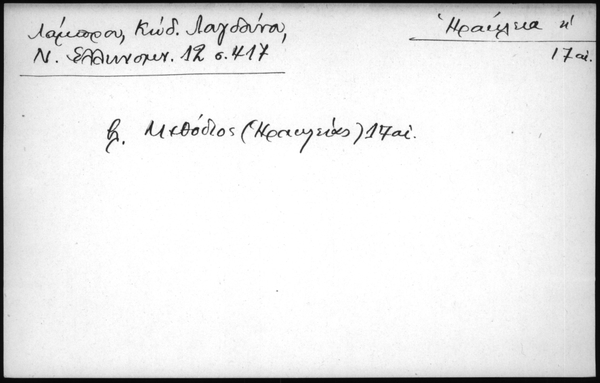 Λάμπρου, Κώδ. Λαγδάνα,
Ν. Ἑλληνομν. 12 σ. 417
Ἡράκλεια
17 αἰ.
βλ. Μεθόδιος (Ἡρακλείας) 17 αἰ.